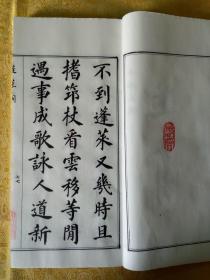 不到蓬萊又幾時且
搘筇杖看雲移等閒
遇事成歌詠人道新